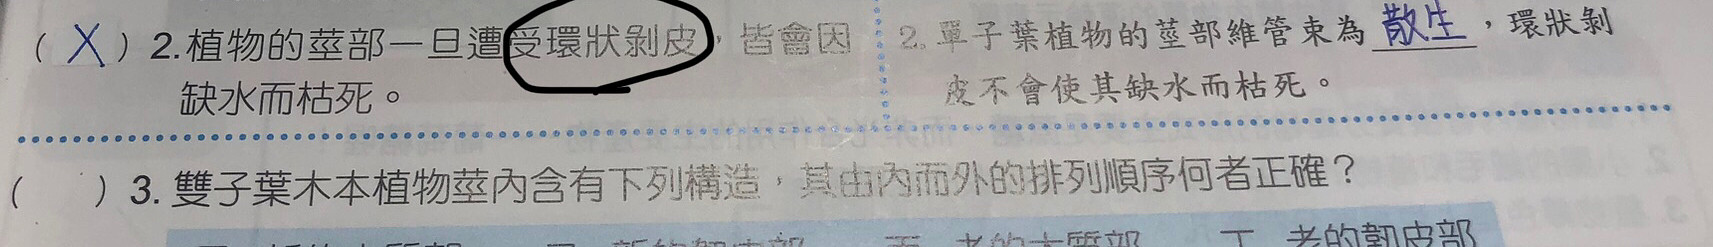 ( X ) 2. 植物的莖部一旦遭受環狀剝皮，皆會因
缺水而枯死。
2. 單子葉植物的莖部維管束為 散生 ，環狀剝
皮不會使其缺水而枯死。
( ) 3. 雙子葉木本植物莖內含有下列構造，其由內而外的排列順序何者正確？
老的木質部 丁 老的韌皮部